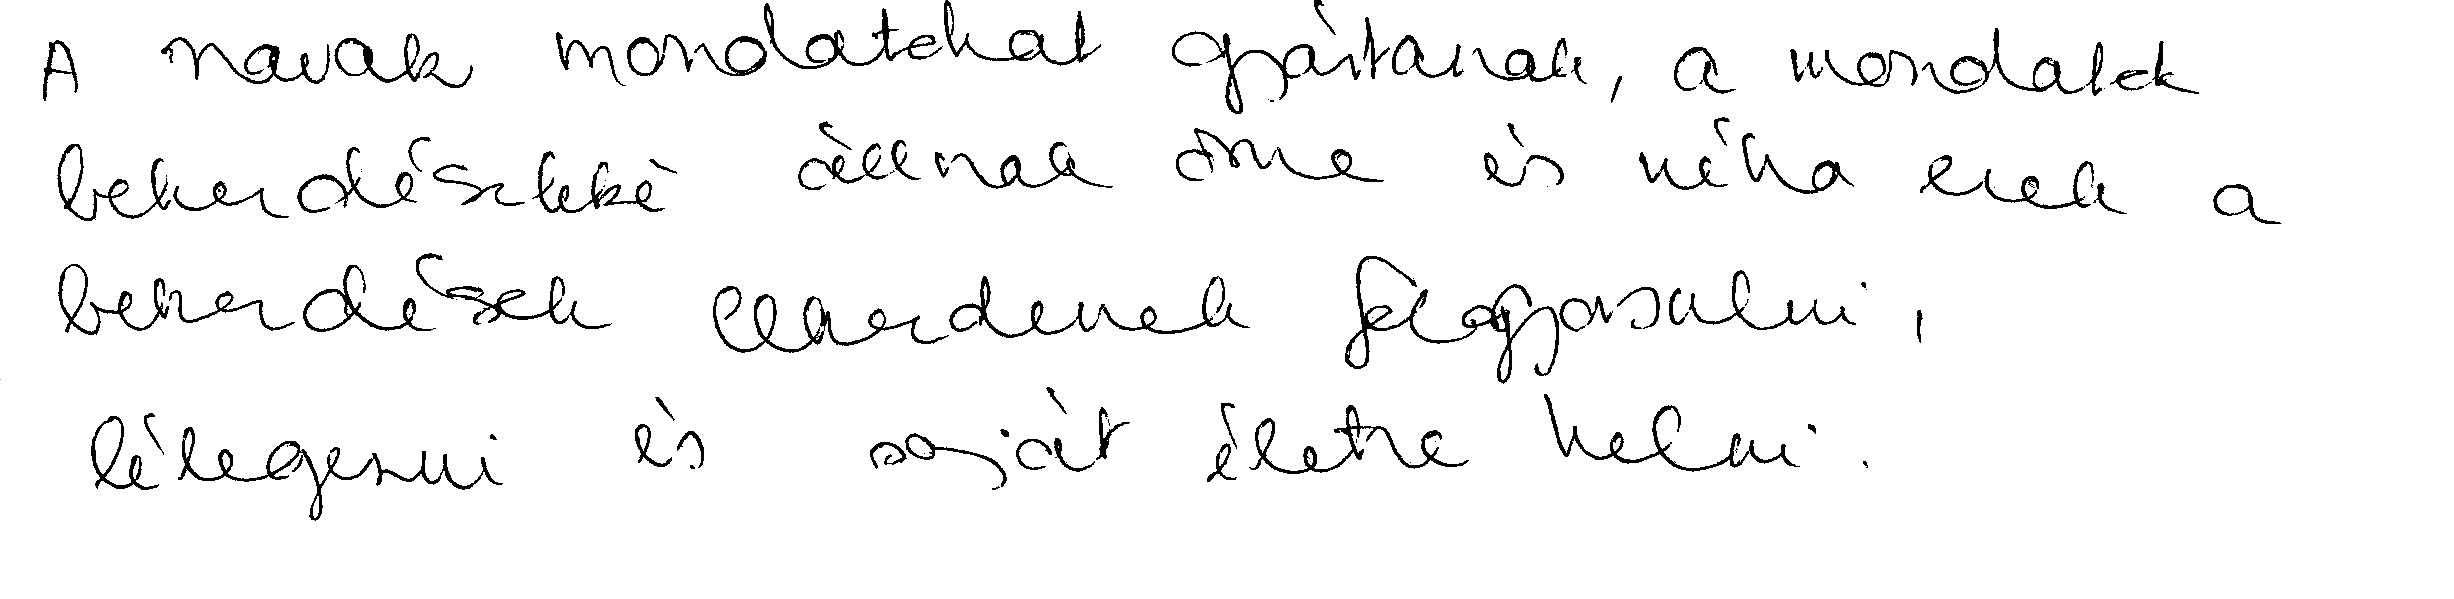 A szavak mondatokat gyártanak, a mondatok
bekezdésekké állnak össze és néha ezek a
bekezdések elkezdenek felgyorsulni,
lélegezni és saját életre kelni.